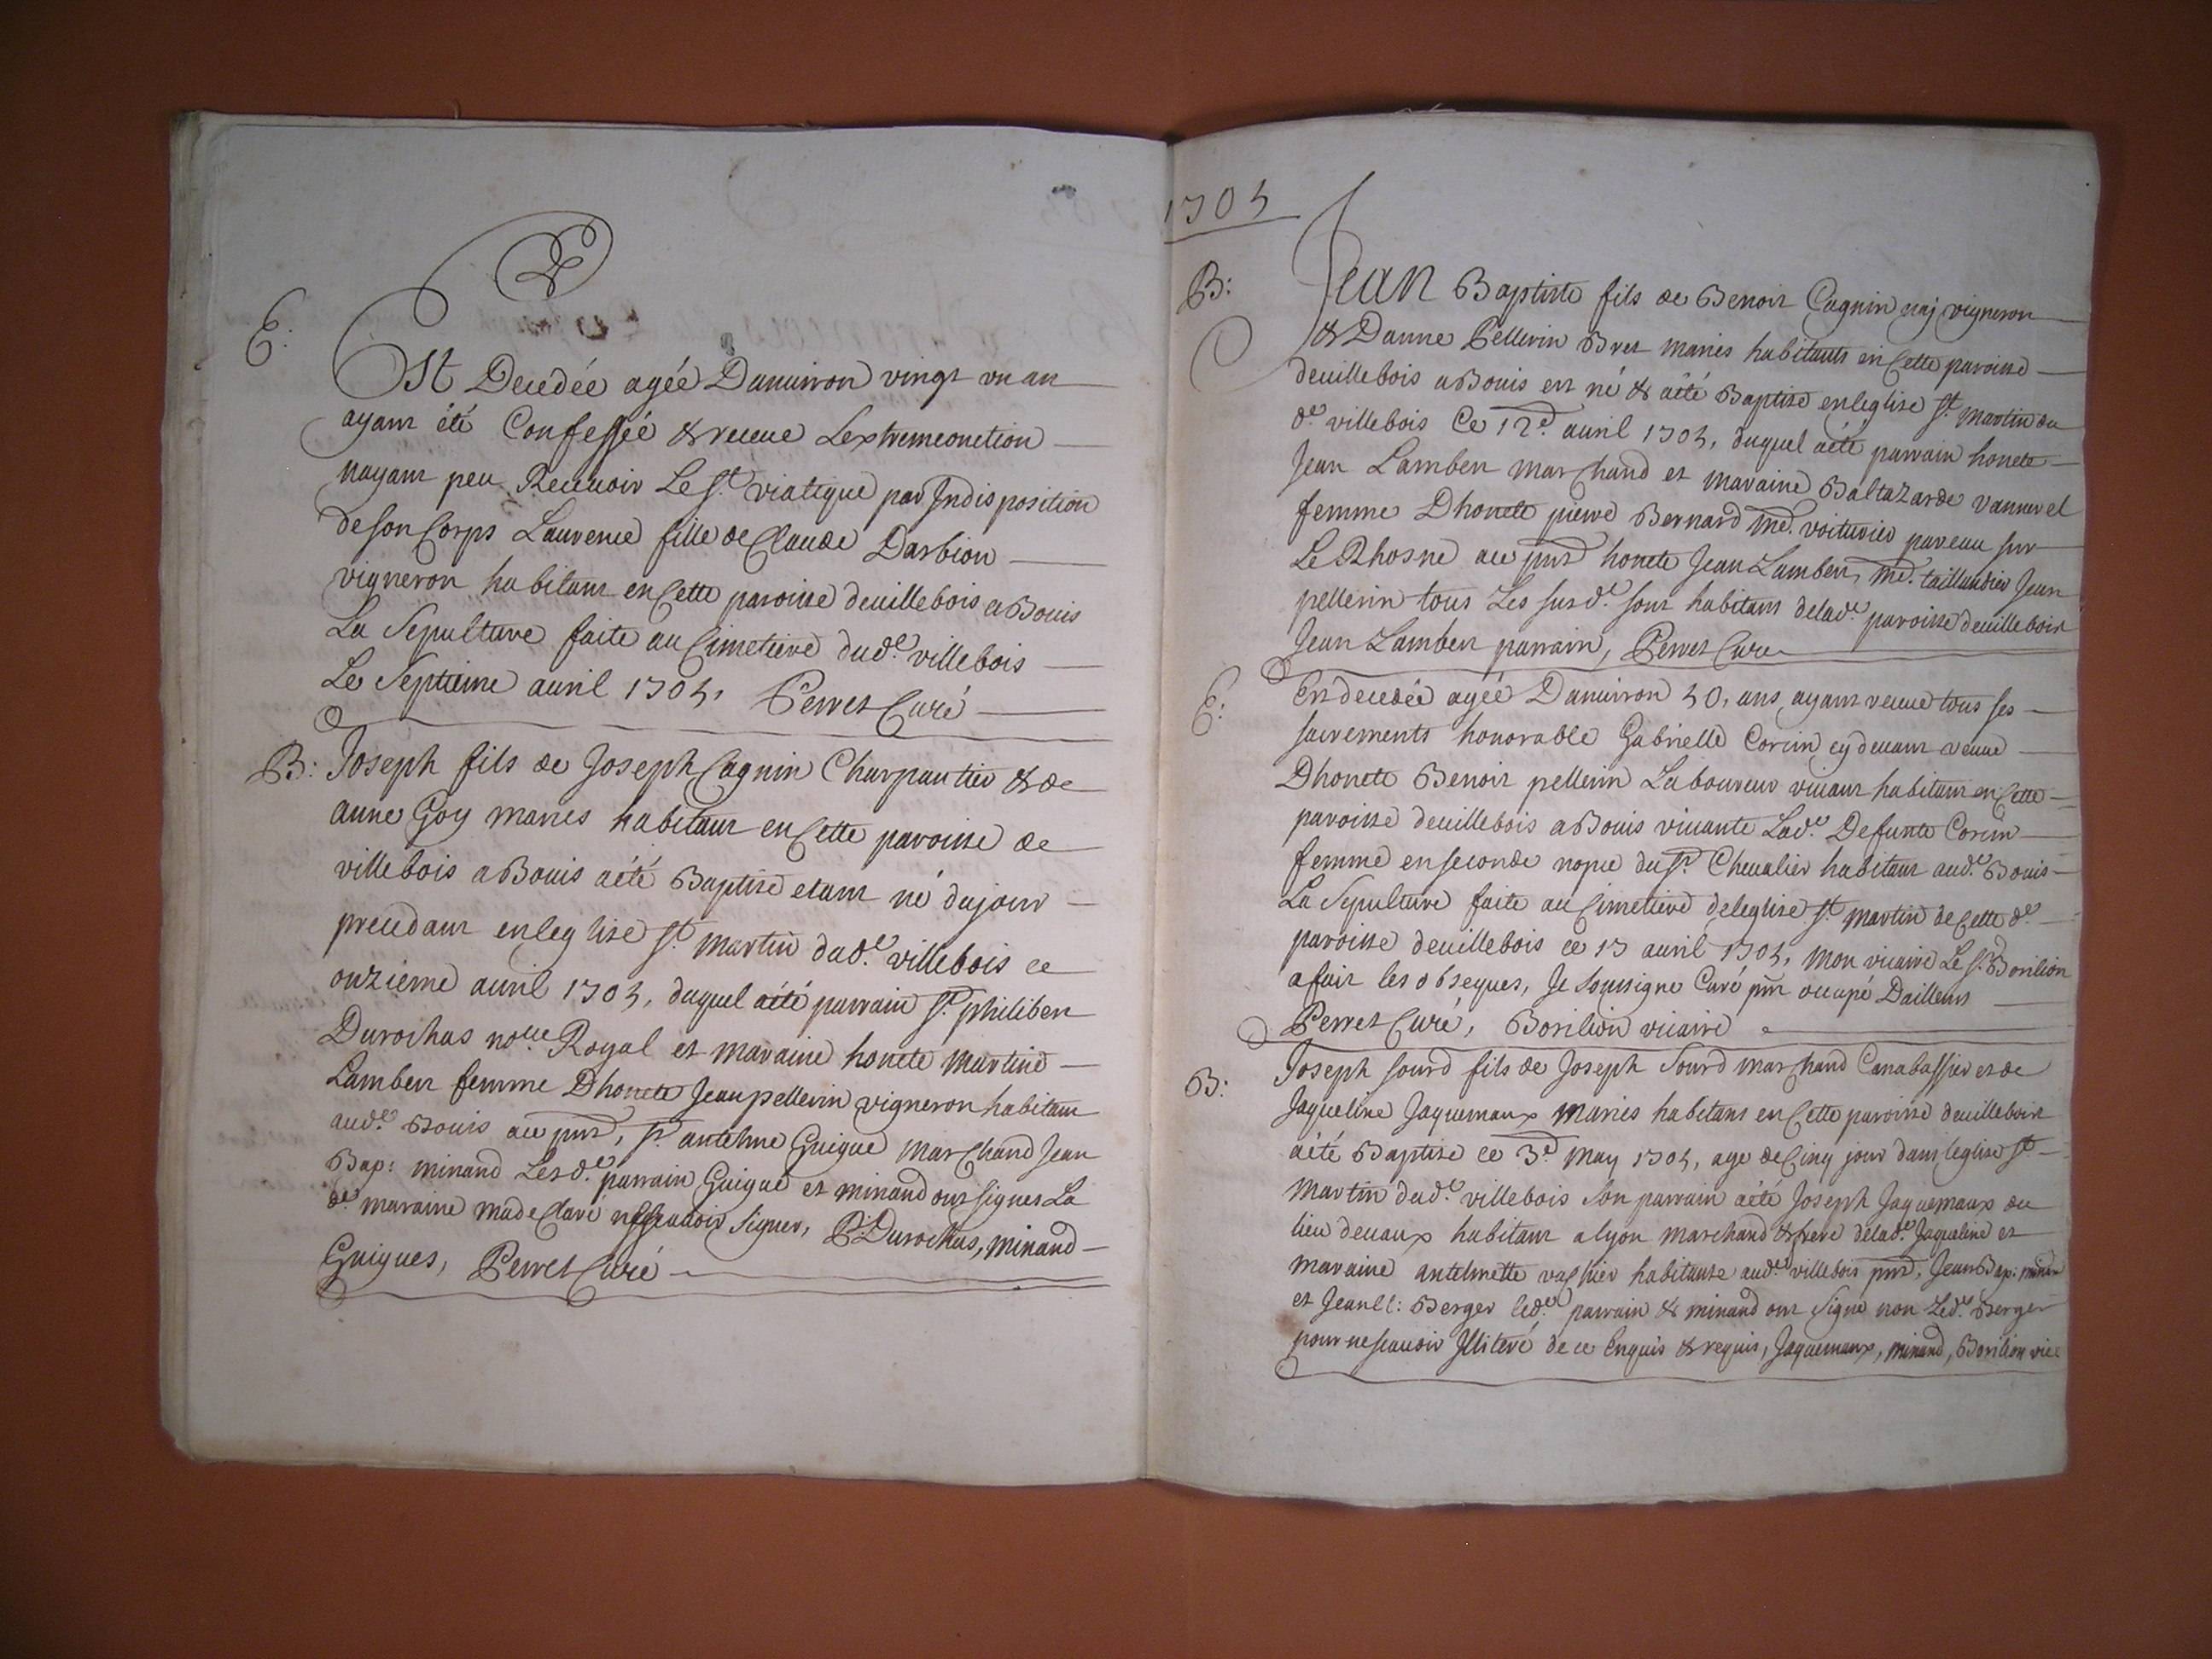 E.
Est Decedée agée Danuiron vingt vn an
ayant été Confessée & receue Lextremeonction
nayant peu Receuoir Le st. viatique par Indisposition
de son Corps Laurence fille de Claude Darbion
vigneron habitant en Cette paroisse deuillebois a Bouis
La Sepulture faite au Cimetiere dud.e villebois
Le Septieme auril 1705, Perret Curé
B: Joseph fils de Joseph Cagnin Charpantier & de
anne Goy mariés habitant en Cette paroisse de
villebois a Bouis aété Baptisé etant né dujour
precedant enleglise st. martin dud.e villebois ce
onzieme auril 1705, duquel aété parrain sr. philibert
Durochas no.re Royal et maraine honete martine
Lambert femme Dhonete Jean pellerin vigneron habitant
aud.e Bouis au pnt, sr. antelme Guigue marChand Jean
Bap: minand Lesd.e parrain Guigue et minand ont signes La
d.e maraine madeClaré nesseauoir signer, P. Durochas, minand
Guigues, Perret Curé
1705
B: Jean Baptiste fils de Benoit Cagnin vigneron
& Danne Pellerin Bret mariés habitants en Cette paroisse
deuillebois a Bouis est né & aété Baptisé enleglise st. martin du
d.e villebois Ce 12.e auril 1705, duquel aété parrain honete
Jean Lambert marChand et maraine Baltazarde vannerel
femme Dhonete pierre Bernard md. voiturier pareau sur
Le Rhosne au pnt honete Jean Lambert, md. taillandier Jean
pellerin tous Les susd.e sont habitant delad.e paroisse deuillebois
Jean Lambert parrain, Perret Curé
E: Est decedée agée Danuiron 50, ans, ayant receue tous ses
sacrements honorable Gabrielle Corcin cy deuant veuue
Dhonete Benoit pellerin Laboureur viuant habitant en Cette
paroisse deuillebois a Bouis viuante Lad.e Defunte Corcin
femme enseconde nopce du sr. Cheualier habitant aud.e Bouis
La Sepulture faite au Cimetiere deleglise st. martin de Cette d.e
paroisse deuillebois ce 17 auril 1705, mon vicaire Le sr. Borilion
a fait les obseques, Je Soussigne Curé pnt occupé Dailleurs
Perret Curé, Borilion vicaire
B: Joseph sourd fils de Joseph Sourd marChand Canabassier et de
Jaqueline Jaquemaux mariés habitans en Cette paroisse deuillebois
aété Baptisé ce 3.e may 1705, age de Cinq jour dans leglise st.
martin dud.e villebois Son parrain aété Joseph Jaquemaux du
lieu deuaux habitant alyon marchand & frere delad.e Jaqueline et
maraine antelmette vaChier habitante aud.e villebois pnt, Jean Bap: minand
et Jean Cl: Berger led.e parrain & minand ont signé non Led.e Berger
pour neseauoir Illiteré de ce Enquis & requis, Jaquemaux, minand, Borilion vic.